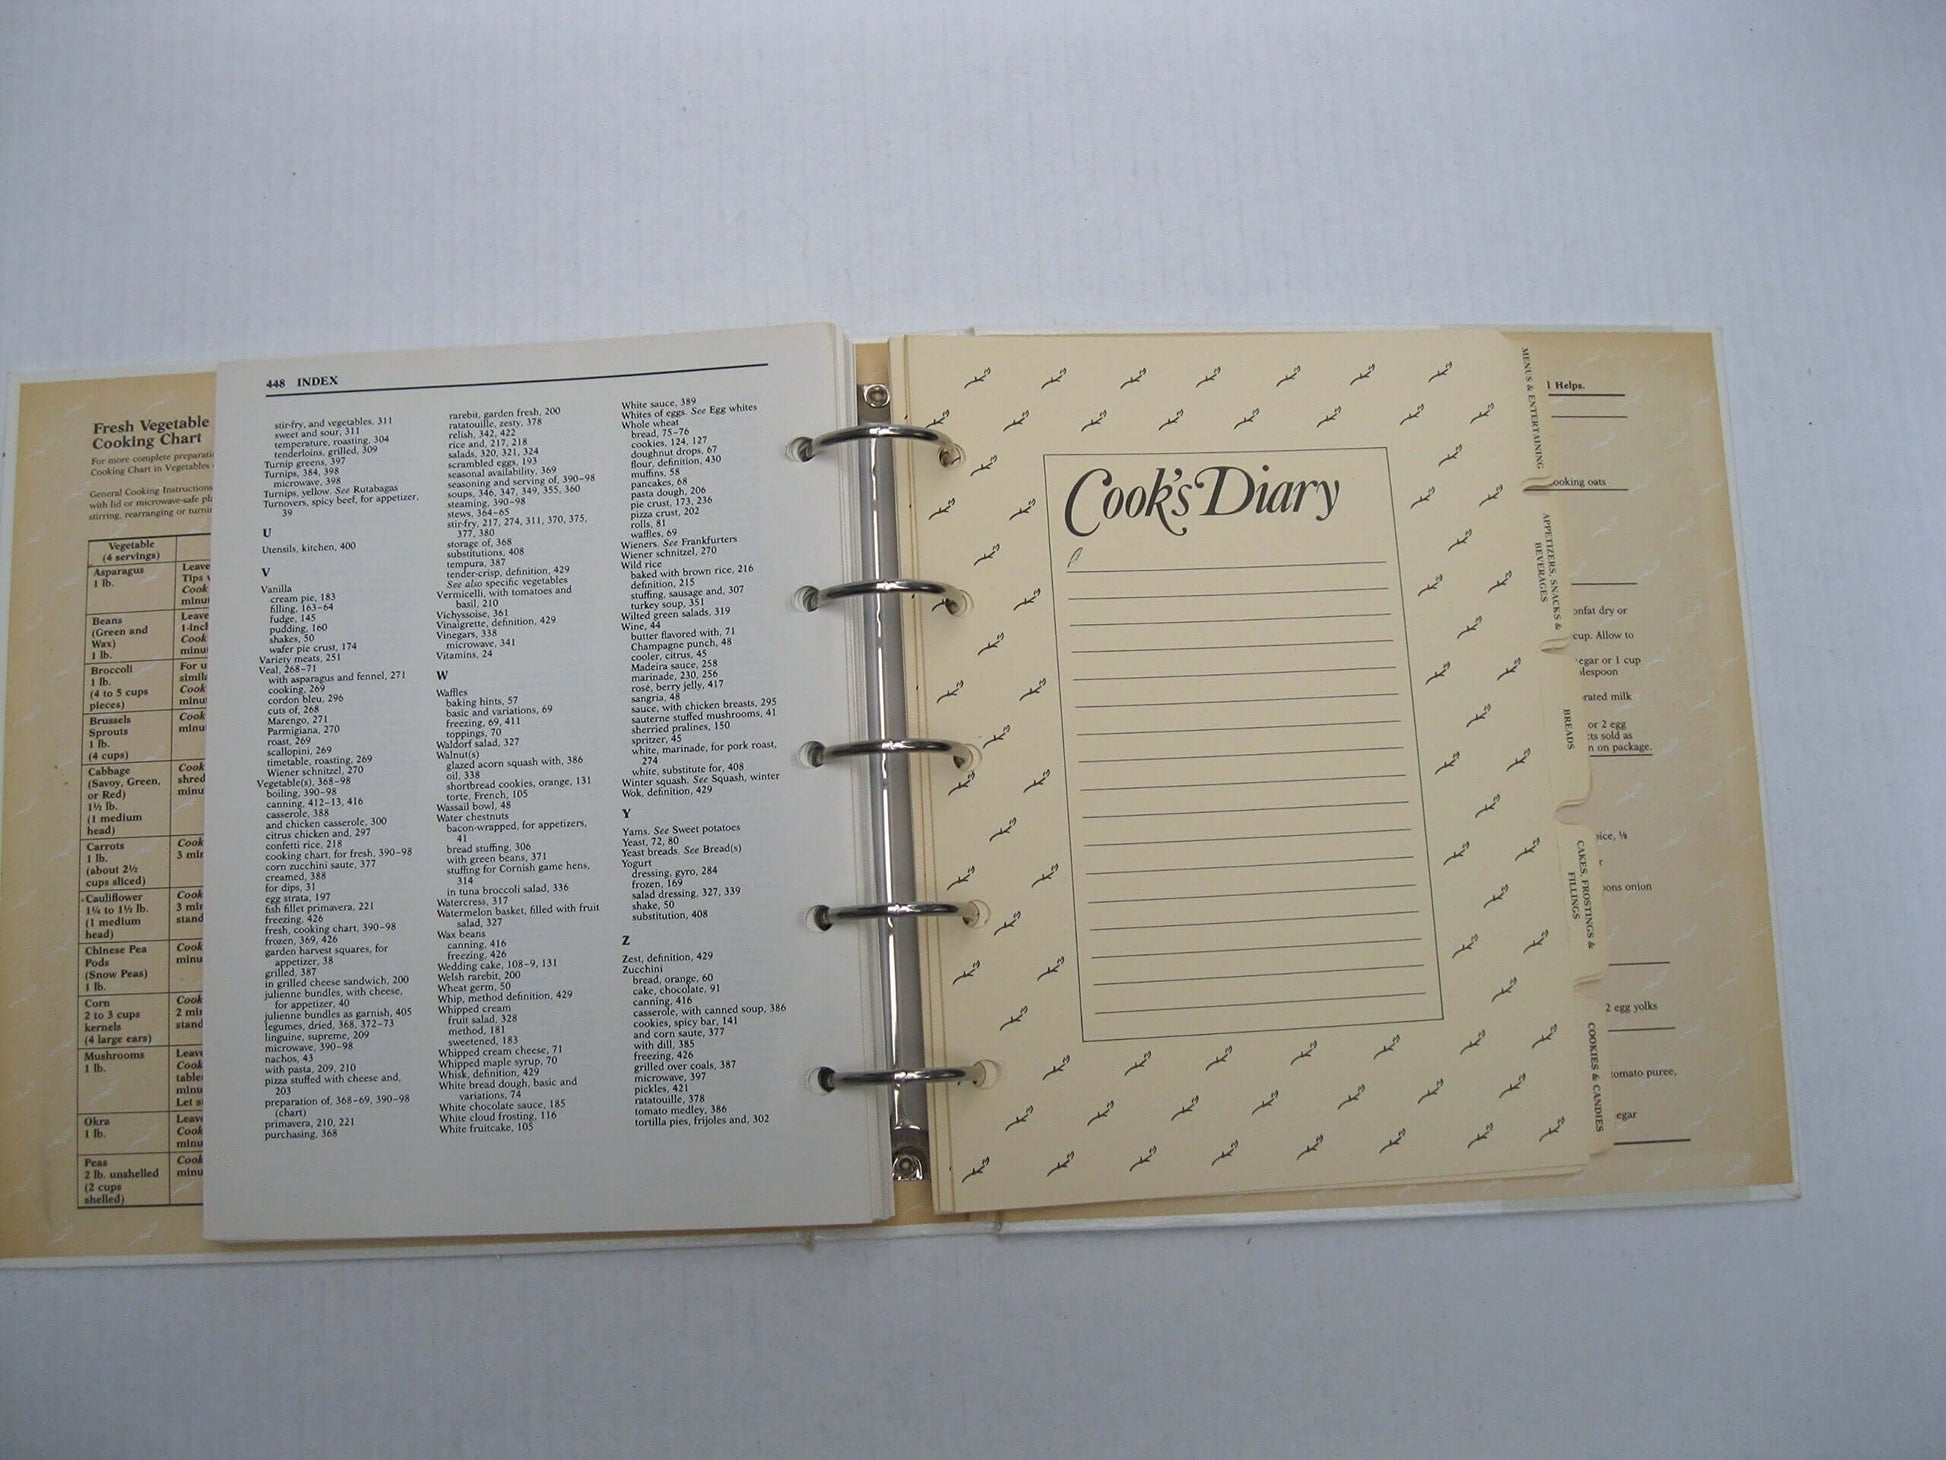 Fresh Vegetable
Cooking Chart
For more complete
Cooking Chart in Vegetables
General Cooking Instructions
with lid or microwave-safe
stirring, rearranging or
Vegetable
(4 servings)
Asparagus
1 lb.
Leave
Tips
Cook
Beans
(Green and
Wax)
1 lb.
Leave
Cook
Broccoli
1 lb.
(4 to 5 cups
pieces)
For
Cook
Brussels
Sprouts
1 lb.
(4 cups)
Cook
Cabbage
(Savoy, Green,
or Red)
1½ lb.
(1 medium
head)
Cook
Carrots
1 lb.
(about 2½
cups sliced)
Cook
3
Cauliflower
1¼ to 1½ lb.
(1 medium
head)
Cook
3
stand
Chinese Pea
Pods
(Snow Peas)
1 lb.
Cook
Corn
2 to 3 cups
kernels
(4 large ears)
Cook
2
stand
Mushrooms
1 lb.
Okra
1 lb.
Peas
2 lb. unshelled
(2 cups
shelled)
Cook
448 INDEX
stir-fry, and vegetables, 311
sweet and sour, 311
temperature, roasting, 304
tenderloins, grilled, 309
Turnip greens, 397
Turnips, 384, 398
microwave, 398
Turnips, yellow. See Rutabagas
Turnovers, spicy beef, for appetizer,
39
U
Utensils, kitchen, 400
V
Vanilla
cream pie, 183
filling, 163–64
fudge, 145
pudding, 160
shakes, 50
wafer pie crust, 174
Variety meats, 251
Veal, 268–71
with asparagus and fennel, 271
cooking, 269
cordon bleu, 296
cuts of, 268
Marengo, 271
Parmigiana, 270
roast, 269
scallopini, 269
timetable, roasting, 269
Wiener schnitzel, 270
Vegetable(s), 368–98
boiling, 390–98
canning, 412–13, 416
casserole, 388
and chicken casserole, 300
citrus chicken and, 297
confetti rice, 218
cooking chart, for fresh, 390–98
corn zucchini saute, 377
creamed, 388
for dips, 31
egg strata, 197
fish fillet primavera, 221
freezing, 426
fresh, cooking chart, 390–98
frozen, 369, 426
garden harvest squares, for
appetizer, 38
grilled, 387
in grilled cheese sandwich, 200
julienne bundles, with cheese,
for appetizer, 40
julienne bundles as garnish, 405
legumes, dried, 368, 372–73
linguine, supreme, 209
microwave, 390–98
nachos, 43
with pasta, 209, 210
pizza stuffed with cheese and,
203
preparation of, 368–69, 390–98
(chart)
primavera, 210, 221
purchasing, 368
rarebit, garden fresh, 200
ratatouille, zesty, 378
relish, 342, 422
rice and, 217, 218
salads, 320, 321, 324
scrambled eggs, 193
seasonal availability, 369
seasoning and serving of, 390–98
soups, 346, 347, 349, 355, 360
steaming, 390–98
stews, 364–65
stir-fry, 217, 274, 311, 370, 375,
377, 380
storage of, 368
substitutions, 408
tempura, 387
tender-crisp, definition, 429
See also specific vegetables
Vermicelli, with tomatoes and
basil, 210
Vichyssoise, 361
Vinaigrette, definition, 429
Vinegars, 338
microwave, 341
Vitamins, 24
W
Waffles
baking hints, 57
basic and variations, 69
freezing, 69, 411
toppings, 70
Waldorf salad, 327
Walnut(s)
glazed acorn squash with, 386
oil, 338
shortbread cookies, orange, 131
torte, French, 105
Wassail bowl, 48
Water chestnuts
bacon-wrapped, for appetizers,
41
bread stuffing, 306
with green beans, 371
stuffing for Cornish game hens,
314
in tuna broccoli salad, 336
Watercress, 317
Watermelon basket, filled with fruit
salad, 327
Wax beans
canning, 416
freezing, 426
Wedding cake, 108–9, 131
Welsh rarebit, 200
Wheat germ, 50
Whip, method definition, 429
Whipped cream
fruit salad, 328
method, 181
sweetened, 183
Whipped cream cheese, 71
Whipped maple syrup, 70
Whisk, definition, 429
White bread dough, basic and
variations, 74
White chocolate sauce, 185
White cloud frosting, 116
White fruitcake, 105
White sauce, 389
Whites of eggs. See Egg whites
Whole wheat
bread, 75–76
cookies, 124, 127
doughnut drops, 67
flour, definition, 430
muffins, 58
pancakes, 68
pasta dough, 206
pie crust, 173, 236
pizza crust, 202
rolls, 81
waffles, 69
Wieners. See Frankfurters
Wiener schnitzel, 270
Wild rice
baked with brown rice, 216
definition, 215
stuffing, sausage and, 307
turkey soup, 351
Wilted green salads, 319
Wine, 44
butter flavored with, 71
Champagne punch, 48
cooler, citrus, 45
Madeira sauce, 258
marinade, 230, 256
rosé, berry jelly, 417
sangria, 48
sauce, with chicken breasts, 295
sauterne stuffed mushrooms, 41
sherried pralines, 150
spritzer, 45
white, marinade, for pork roast,
274
white, substitute for, 408
Winter squash. See Squash, winter
Wok, definition, 429
Y
Yams. See Sweet potatoes
Yeast, 72, 80
Yeast breads. See Bread(s)
Yogurt
dressing, gyro, 284
frozen, 169
salad dressing, 327, 339
shake, 50
substitution, 408
Z
Zest, definition, 429
Zucchini
bread, orange, 60
cake, chocolate, 91
canning, 416
casserole, with canned soup, 386
cookies, spicy bar, 141
and corn saute, 377
with dill, 385
freezing, 426
grilled over coals, 387
microwave, 397
pickles, 421
ratatouille, 378
tomato medley, 386
tortilla pies, frijoles and, 302
Cook's Diary
MENUS & ENTERTAINING
APPETIZERS, SNACKS &
BEVERAGES
BREADS
CAKES, FROSTINGS &
FILLINGS
COOKIES & CANDIES
Helps.
ooking oats
onfat dry or
cup. Allow to
egar or 1 cup
blespoon
rated milk
or 2 egg
cts sold as
n on package.
oice, ⅛
oons onion
2 egg yolks
tomato puree,
egar